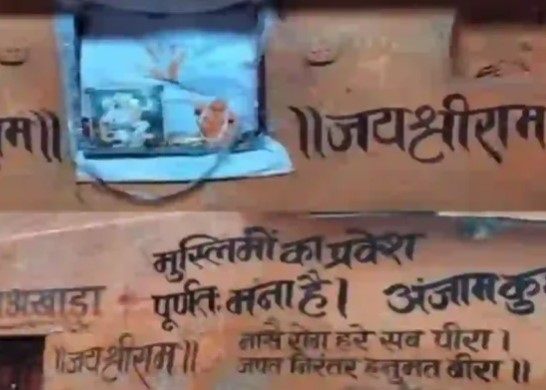 ॥जयश्रीराम
मुस्लिमों का प्रवेश
अखाड़ा पूर्णतः मना है। अंजाम
॥जयश्रीराम॥ नासै रोग हरे सब पीरा।
जपत निरंतर हनुमत बीरा॥